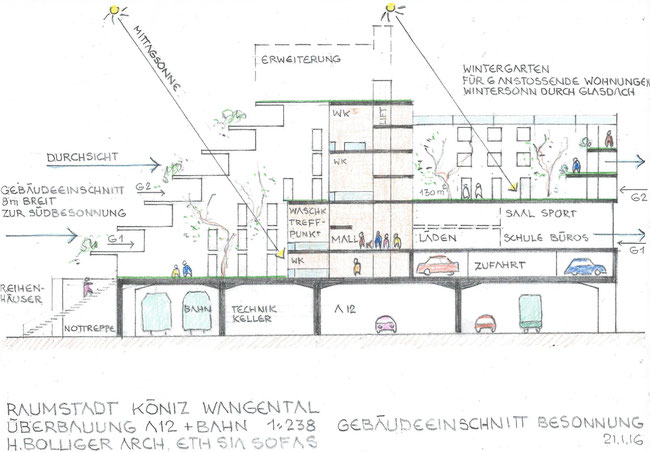 MITTAGSSONNE
ERWEITERUNG
WINTERGARTEN
FÜR 6 ANSTOSSENDE WOHNUNGEN
WINTERSONN DURCH GLASDACH
WK
LIFT
WK
DURCHSICHT
GEBÄUDEEINSCHNITT
8m BREIT
ZUR SÜDBESONNUNG
G2
G1
130m²
G2
WASCHK
TREFF-
PUNKT
MALL
LÄDEN
SAAL SPORT
SCHULE BÜROS
G1
WK
ZUFAHRT
REIHEN-
HÄUSER
NOTTREPPE
BAHN
TECHNIK
KELLER
A12
RAUMSTADT KÖNIZ WANGENTAL
ÜBERBAUUNG A12 + BAHN 1:238
H.BOLLIGER ARCH. ETH SIA SOFAS
GEBÄUDEEINSCHNITT BESONNUNG
21.1.16